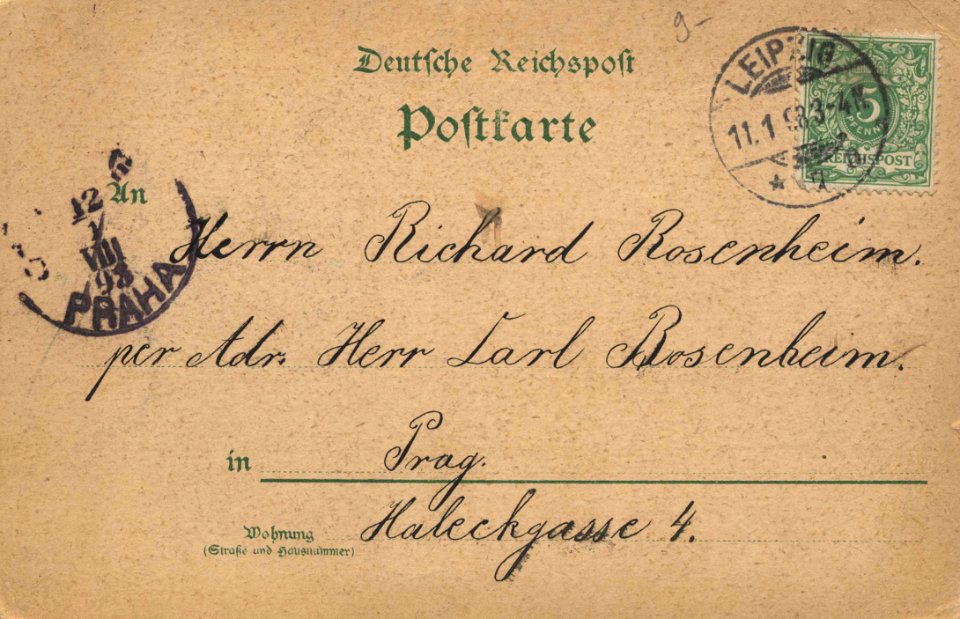 9-
Deutsche Reichspost
Postkarte
LEIPZIG
11.1 98 3-4N.
5
PFENNIG
REICHSPOST
An
12
1
VIII
98
PRAHA
Herrn Richard Rosenheim.
per Adr. Herr Carl Rosenheim.
in Prag.
Wohnung
(Straße und Hausnummer)
Haleckgasse 4.